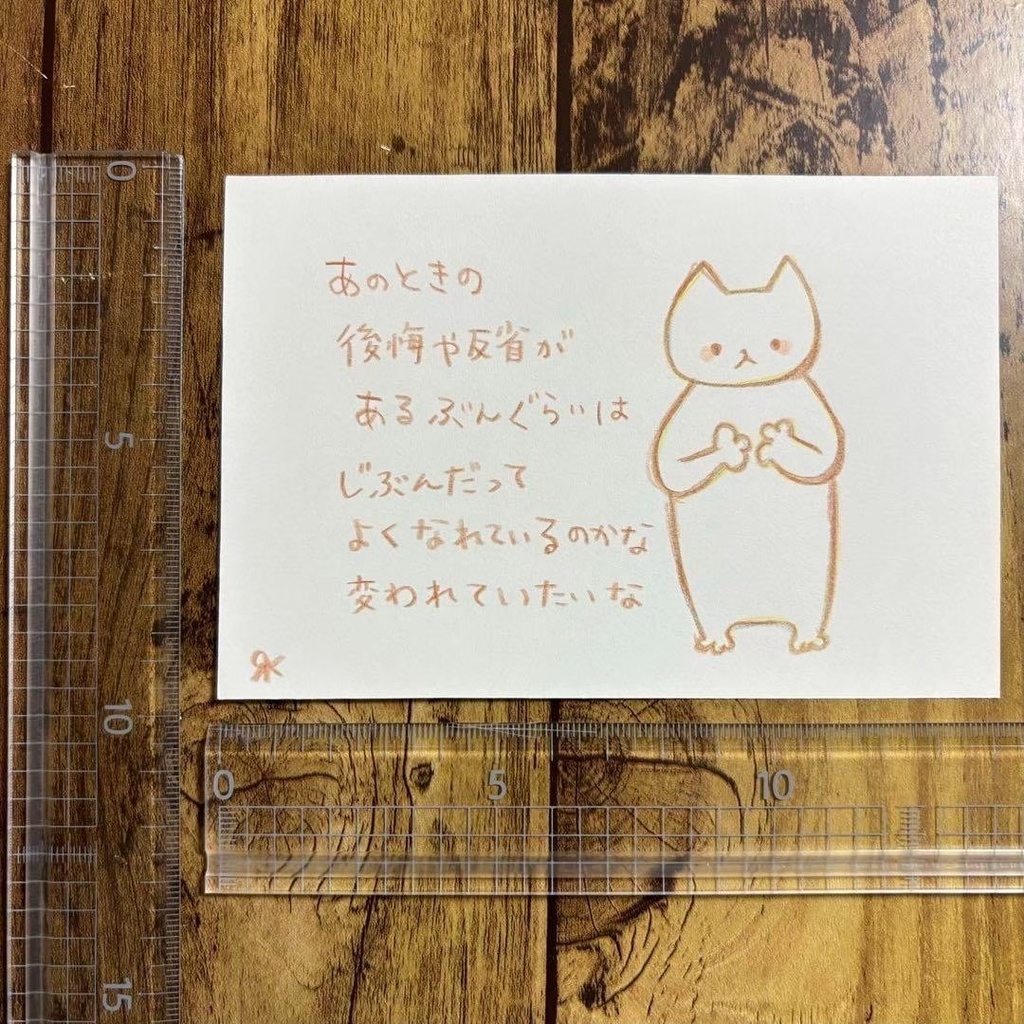 あのときの
後悔や反省が
あるぶんぐらいは
じぶんだって
よくなれているのかな
変われていたいな
0
5
10
15
0
5
10